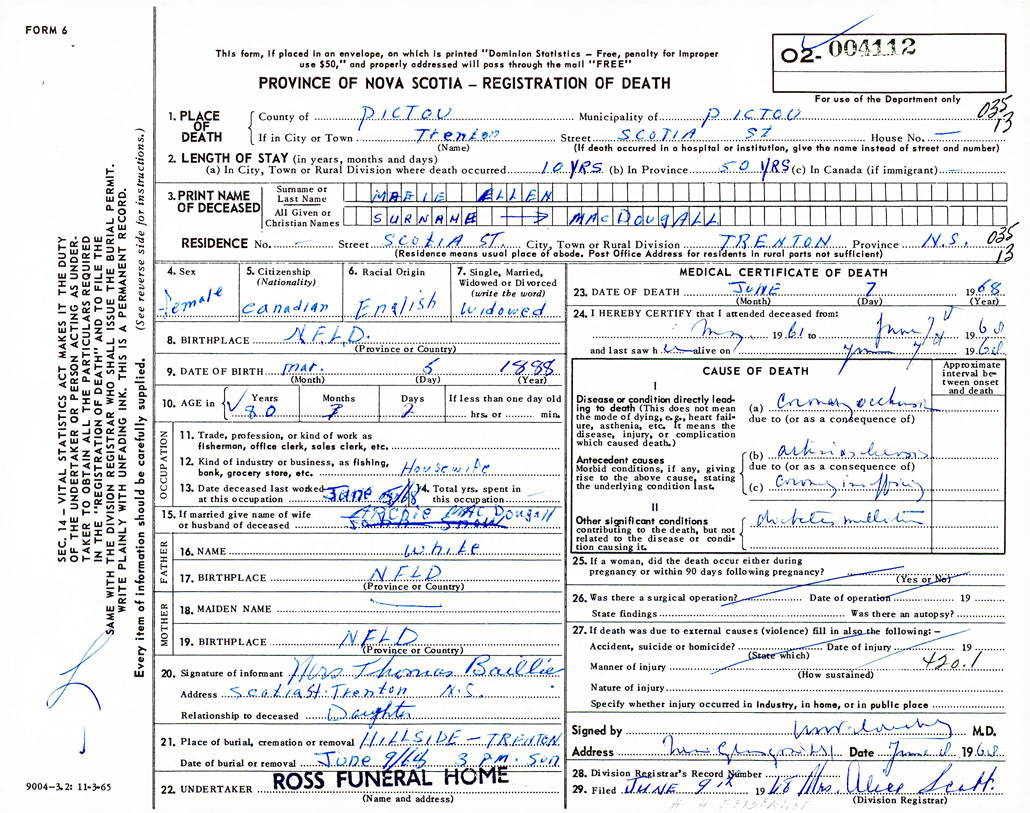 FORM 6
This form, if placed in an envelope, on which is printed "Dominion Statistics – Free, penalty for improper
use $50," and properly addressed will pass through the mail "FREE"
PROVINCE OF NOVA SCOTIA – REGISTRATION OF DEATH
02- 004112
For use of the Department only
035
13
1. PLACE OF DEATH
County of PICTOU Municipality of PICTOU
If in City or Town Trenton Street SCOTIA ST House No. —
(Name) (If death occurred in a hospital or institution, give the name instead of street and number)
2. LENGTH OF STAY (in years, months and days)
(a) In City, Town or Rural Division where death occurred 10 YRS (b) In Province 50 YRS (c) In Canada (if immigrant) —
3. PRINT NAME OF DECEASED
Surname or Last Name MARIE ELLEN
All Given or Christian Names SURNAME → MACDOUGALL
RESIDENCE No. — Street SCOTIA ST. City, Town or Rural Division TRENTON Province N.S. 035
13
(Residence means usual place of abode. Post Office Address for residents in rural parts not sufficient)
4. Sex
female
5. Citizenship
(Nationality)
Canadian
6. Racial Origin
English
7. Single, Married,
Widowed or Divorced
(write the word)
Widowed
8. BIRTHPLACE NFLD.
(Province or Country)
9. DATE OF BIRTH Mar. 5 1888
(Month) (Day) (Year)
10. AGE in Years Months Days If less than one day old
80 3 2 hrs. or min.
OCCUPATION
11. Trade, profession, or kind of work as
fisherman, office clerk, sales clerk, etc.
12. Kind of industry or business, as fishing,
bank, grocery store, etc. Housewife
13. Date deceased last worked
at this occupation June 5/68
14. Total yrs. spent in
this occupation —
15. If married give name of wife
or husband of deceased ARCHIE MAC Dougall
FATHER
16. NAME White
17. BIRTHPLACE NFLD
(Province or Country)
MOTHER
18. MAIDEN NAME
19. BIRTHPLACE NFLD
(Province or Country)
20. Signature of informant Mrs Thomas Baillie
Address Scotia St. Trenton N.S.
Relationship to deceased Daughter
21. Place of burial, cremation or removal HILLSIDE – TRENTON
Date of burial or removal June 9/68 3 P.M. Sun
22. UNDERTAKER ROSS FUNERAL HOME
(Name and address)
MEDICAL CERTIFICATE OF DEATH
23. DATE OF DEATH JUNE 7 1968
(Month) (Day) (Year)
24. I HEREBY CERTIFY that I attended deceased from:
May 1961 to June 7 1968
and last saw her alive on June 7 1968
CAUSE OF DEATH
Approximate
interval be-
tween onset
and death
I
Disease or condition directly lead-
ing to death (This does not mean
the mode of dying, e.g., heart fail-
ure, asthenia, etc. It means the
disease, injury, or complication
which caused death.)
(a) Coronary occlusion
due to (or as a consequence of)
Antecedent causes
Morbid conditions, if any, giving
rise to the above cause, stating
the underlying condition last.
(b) arteriosclerosis
due to (or as a consequence of)
(c) Coronary insufficiency
II
Other significant conditions
contributing to the death, but not
related to the disease or condi-
tion causing it.
diabetes mellitus
25. If a woman, did the death occur either during
pregnancy or within 90 days following pregnancy?
(Yes or No)
26. Was there a surgical operation? Date of operation 19
State findings Was there an autopsy?
27. If death was due to external causes (violence) fill in also the following: –
Accident, suicide or homicide? Date of injury 19
(State which)
420.1
Manner of injury
(How sustained)
Nature of injury
Specify whether injury occurred in industry, in home, or in public place
Signed by M.D.
Address New Glasgow Date June 1968
28. Division Registrar's Record Number
29. Filed JUNE 9th 1968 Mrs. Alice Scott
(Division Registrar)
SEC. 14 – VITAL STATISTICS ACT MAKES IT THE DUTY
OF THE UNDERTAKER OR PERSON ACTING AS UNDER-
TAKER TO OBTAIN ALL THE PARTICULARS REQUIRED
IN THE "REGISTRATION OF DEATH" AND TO FILE THE
SAME WITH THE DIVISION REGISTRAR WHO SHALL ISSUE THE BURIAL PERMIT.
WRITE PLAINLY WITH UNFADING INK. THIS IS A PERMANENT RECORD.
Every item of information should be carefully supplied. (See reverse side for instructions.)
9004-3.2: 11-3-65